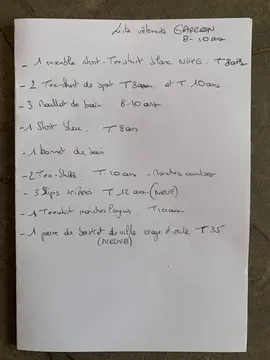 Liste vêtements GARCON
8-10 ans
- 1 ensemble short-Tee-shirt blanc NIKE. T 8 ans
- 2 Tee-shirt de sport T 8 ans et T. 10 ans
- 3 Maillot de bain 8-10 ans
- 1 Short bleu. T 8 ans
- 1 bonnet de bain
- 2 Tee-Shirts. T. 10 ans - Manches courtes
- 3 Slips T 12 ans (NEUF)
- 1 Teeshirt manches longues T 10 ans
- 1 paire de basket de ville orage et verte T 35
(NEUVE)